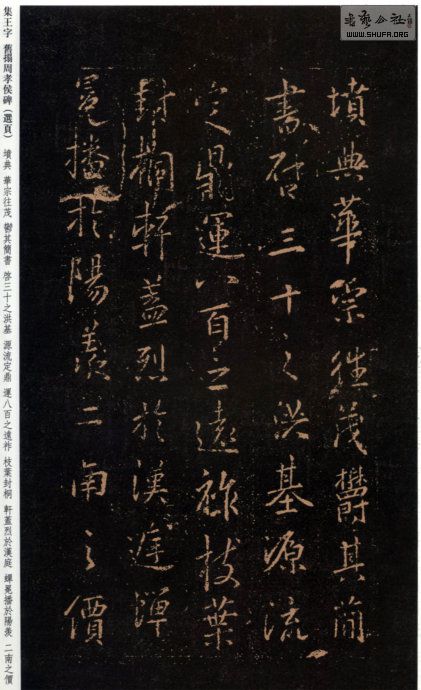 書藝公社
WWW.SHUFA.ORG
墳典華宗往茂鬱其簡
書啓三十之洪基源流
定鼎運八百之遠祚枝葉
封桐軒蓋烈於漢庭蟬
冕播於陽羨二南之價
集王字 舊搨周孝侯碑（選頁） 墳典 華宗往茂 鬱其簡書 啓三十之洪基 源流定鼎 運八百之遠祚 枝葉封桐 軒蓋烈於漢庭 蟬冕播於陽羨 二南之價